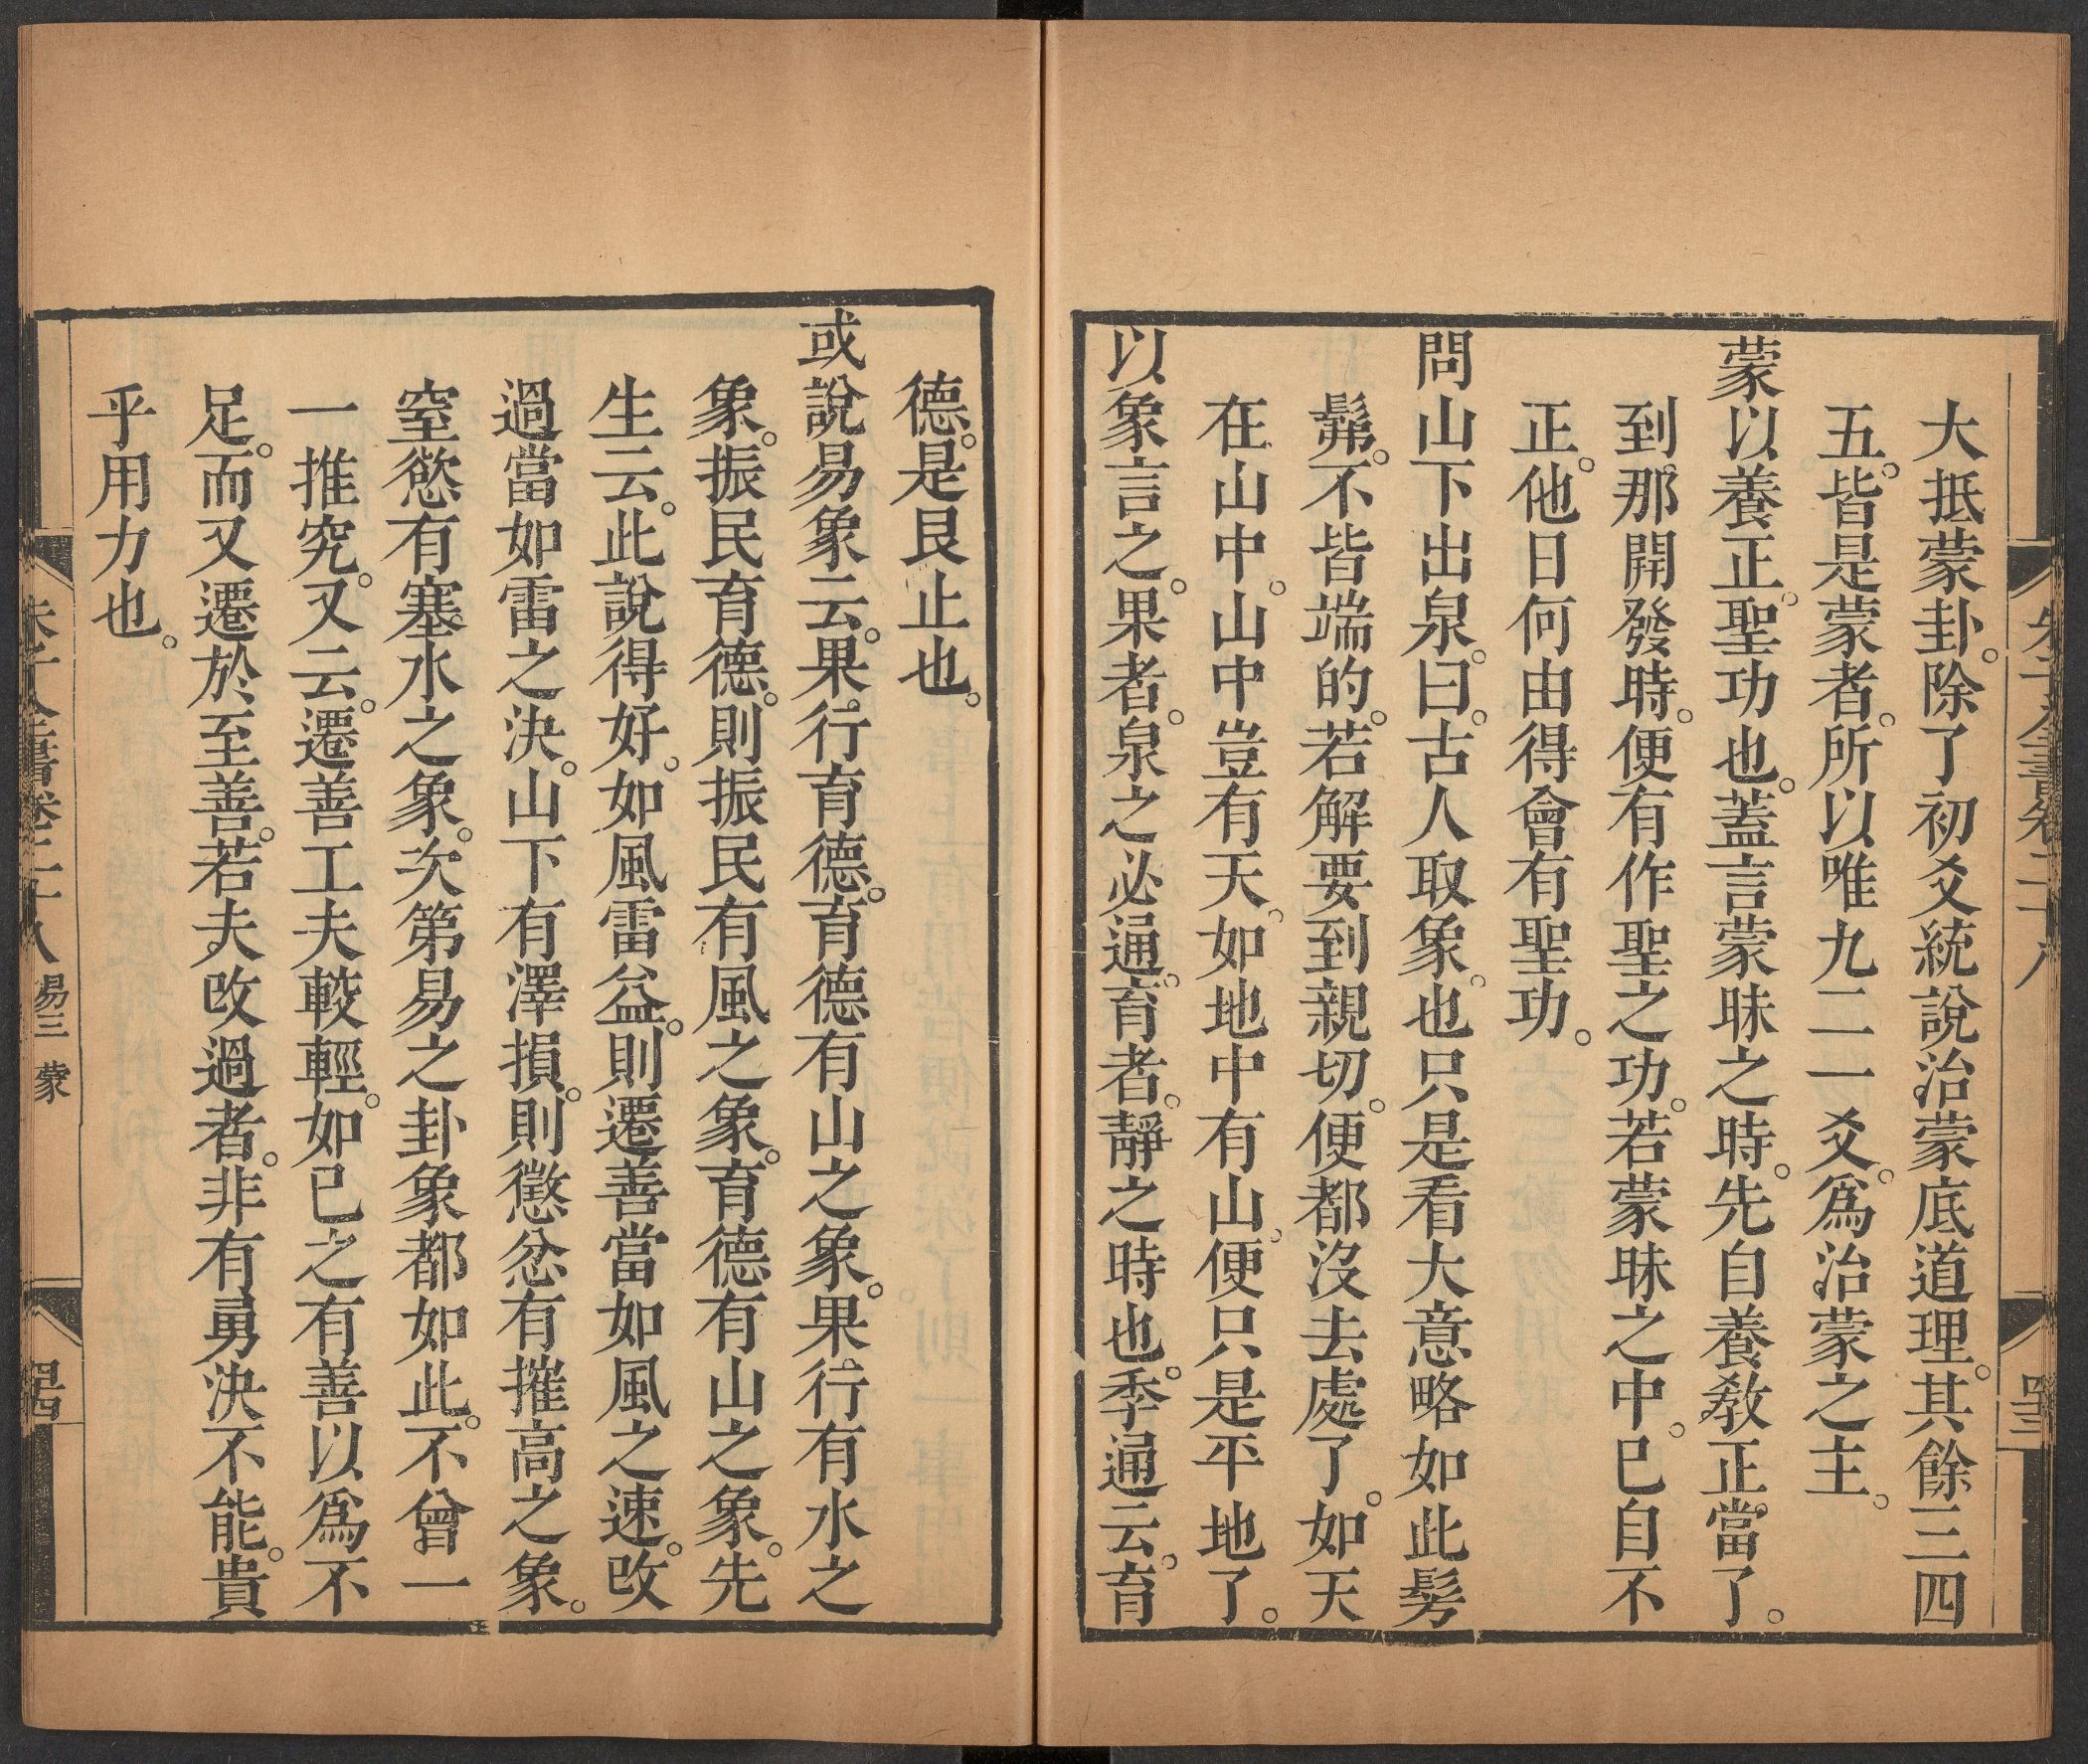 大抵蒙卦。除了初爻統說治蒙底道理。其餘三四
五。皆是蒙者。所以唯九二一爻。爲治蒙之主。
蒙以養正。聖功也。蓋言蒙昧之時。先自養敎正當了。
到那開發時。便有作聖之功。若蒙昧之中。已自不
正。他日何由得會有聖功。
問山下出泉。曰。古人取象。也只是看大意略如此髣
髴。不皆端的。若解要到親切。便都沒去處了。如天
在山中。山中豈有天。如地中有山。便只是平地了。
以象言之。果者。泉之必通。育者。靜之時也。季通云。育
德。是艮止也。
或說易象云。果行育德。育德有山之象。果行有水之
象。振民育德。則振民有風之象。育德有山之象。先
生云。此說得好。如風雷益。則遷善當如風之速。改
過當如雷之決。山下有澤損。則懲忿有摧高之象。
窒慾有塞水之象。次第易之卦象都如此。不曾一
一推究。又云。遷善工夫較輕。如己之有善以爲不
足。而又遷於至善。若夫改過者。非有勇決不能。貴
乎用力也。
朱子全書卷二十八 易三 蒙